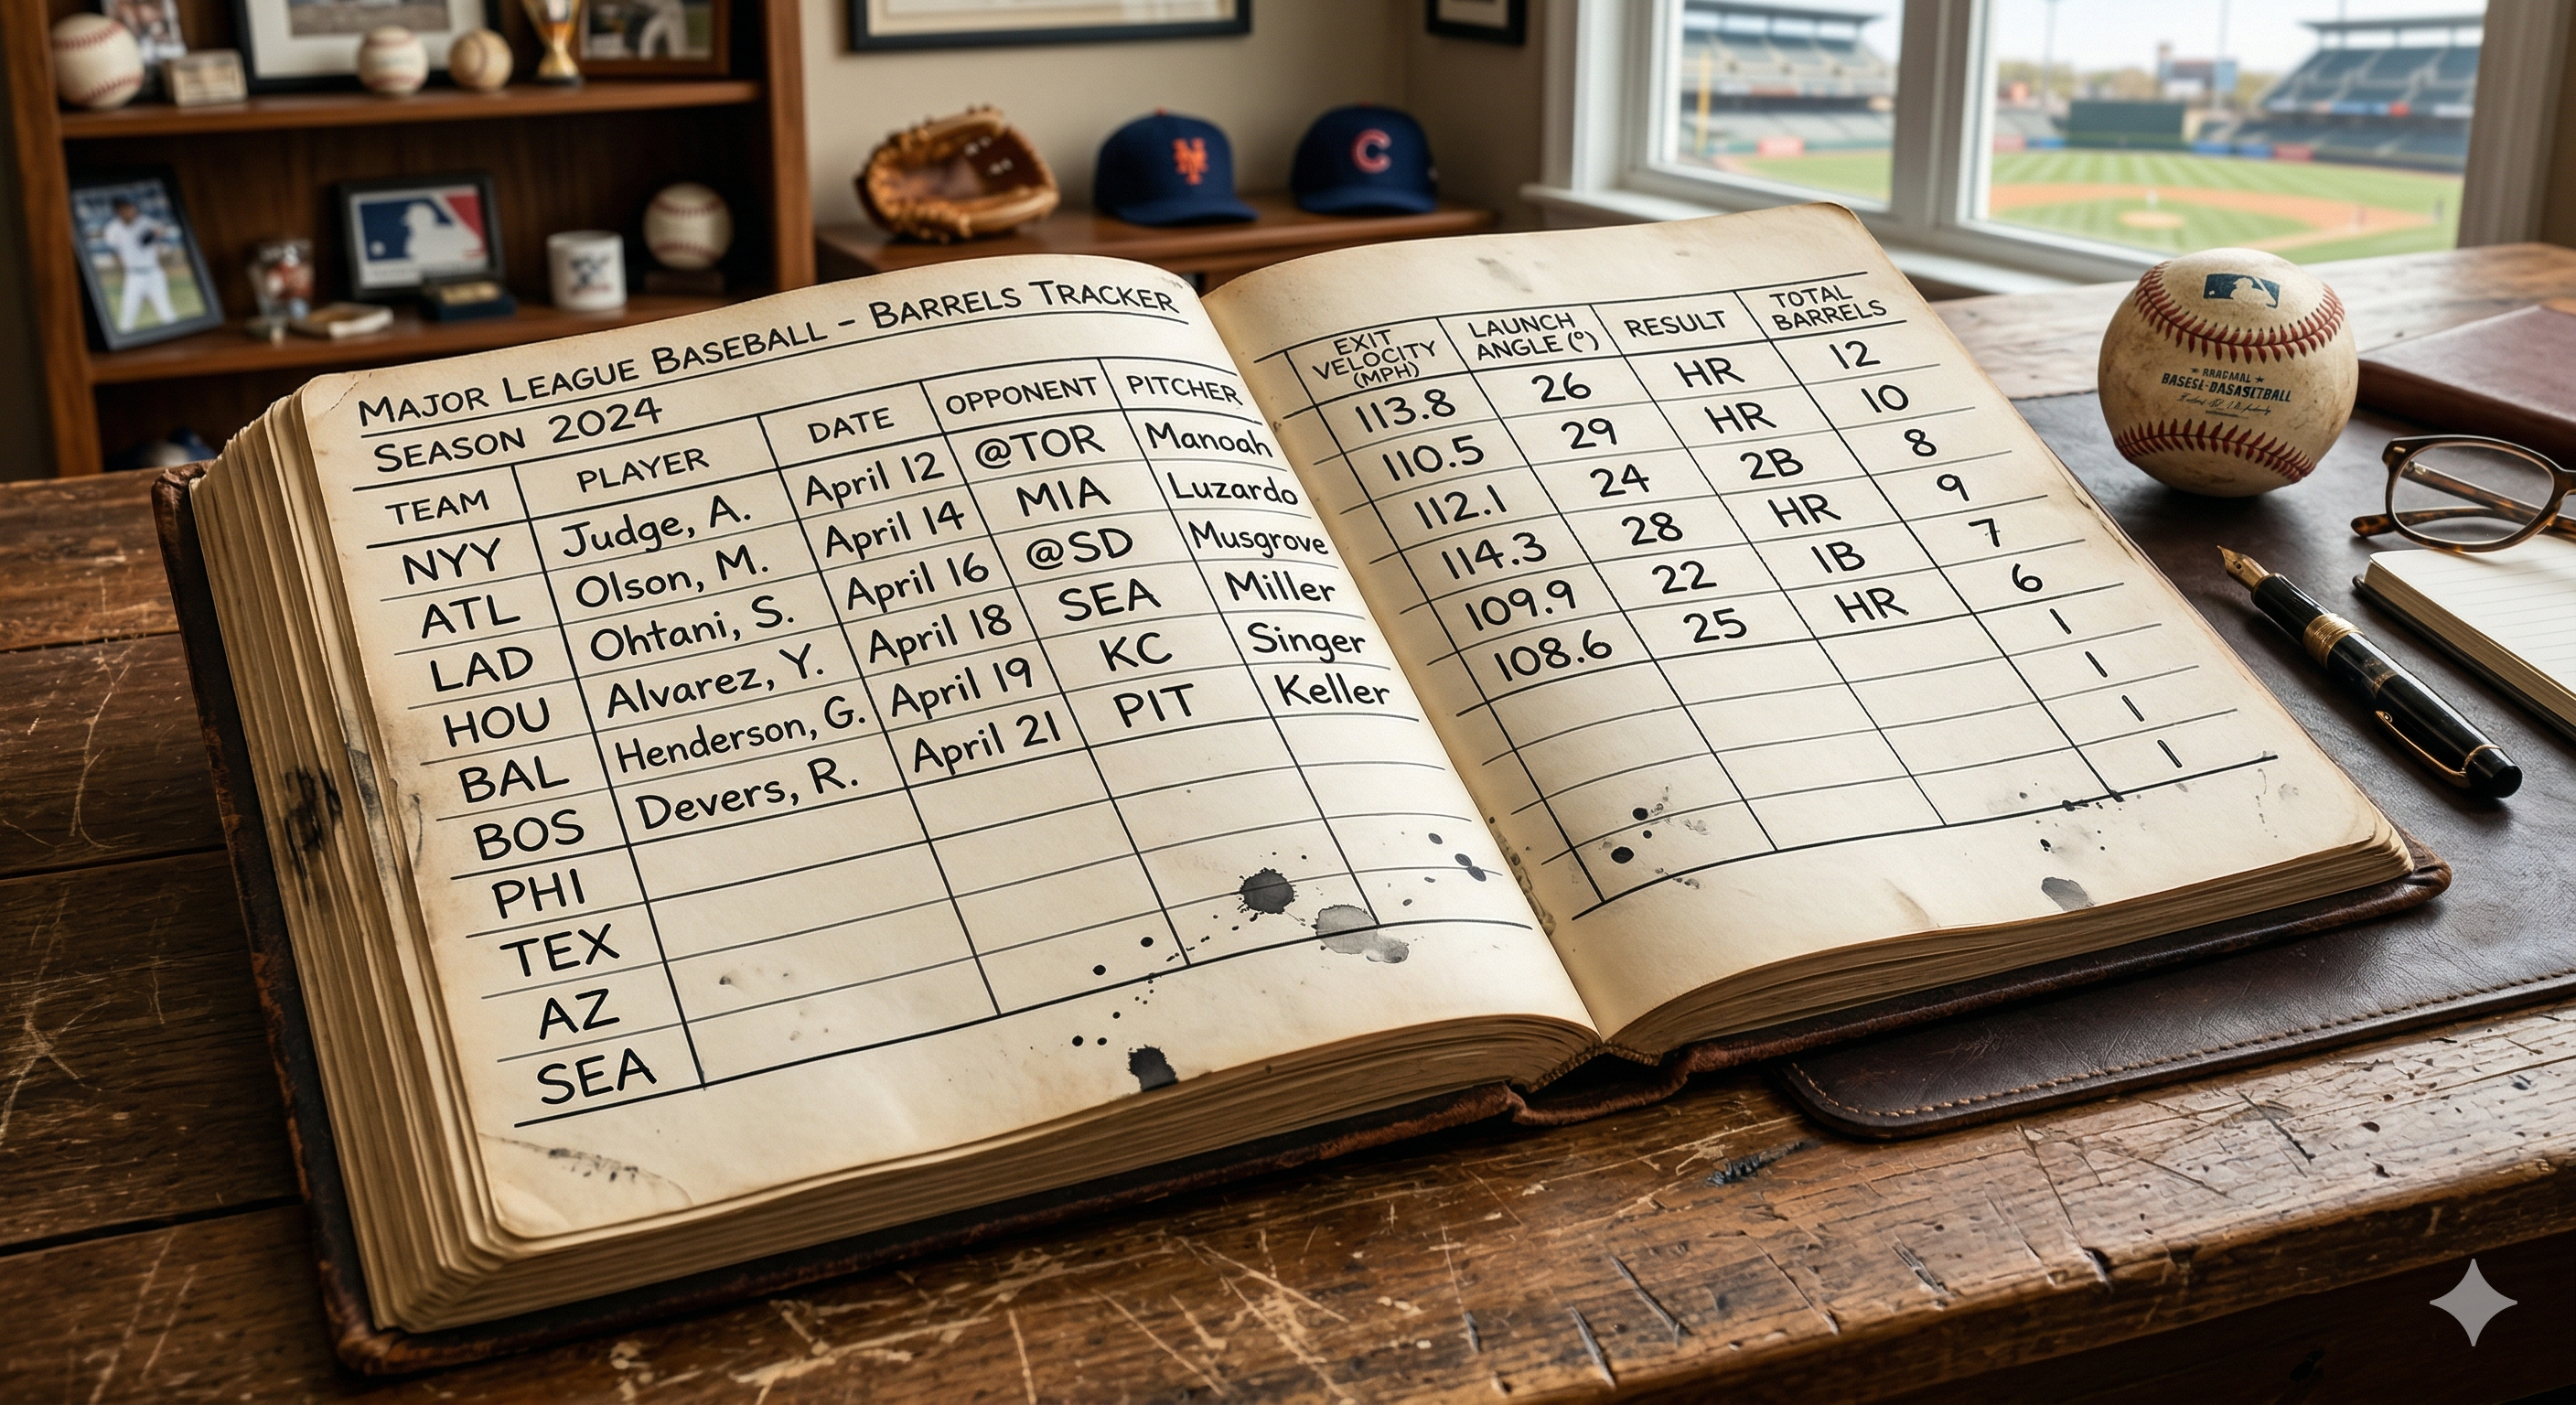 MAJOR LEAGUE BASEBALL – BARRELS TRACKER
SEASON 2024
TEAM PLAYER DATE OPPONENT PITCHER EXIT VELOCITY (MPH) LAUNCH ANGLE (°) RESULT TOTAL BARRELS
NYY Judge, A. April 12 @TOR Manoah 113.8 26 HR 12
ATL Olson, M. April 14 MIA Luzardo 110.5 29 HR 10
LAD Ohtani, S. April 16 @SD Musgrove 112.1 24 2B 8
HOU Alvarez, Y. April 18 SEA Miller 114.3 28 HR 9
BAL Henderson, G. April 19 KC Singer 109.9 22 1B 7
BOS Devers, R. April 21 PIT Keller 108.6 25 HR 6
PHI 1
TEX 1
AZ 1
SEA 1
C
BASESE-DASASETBALL